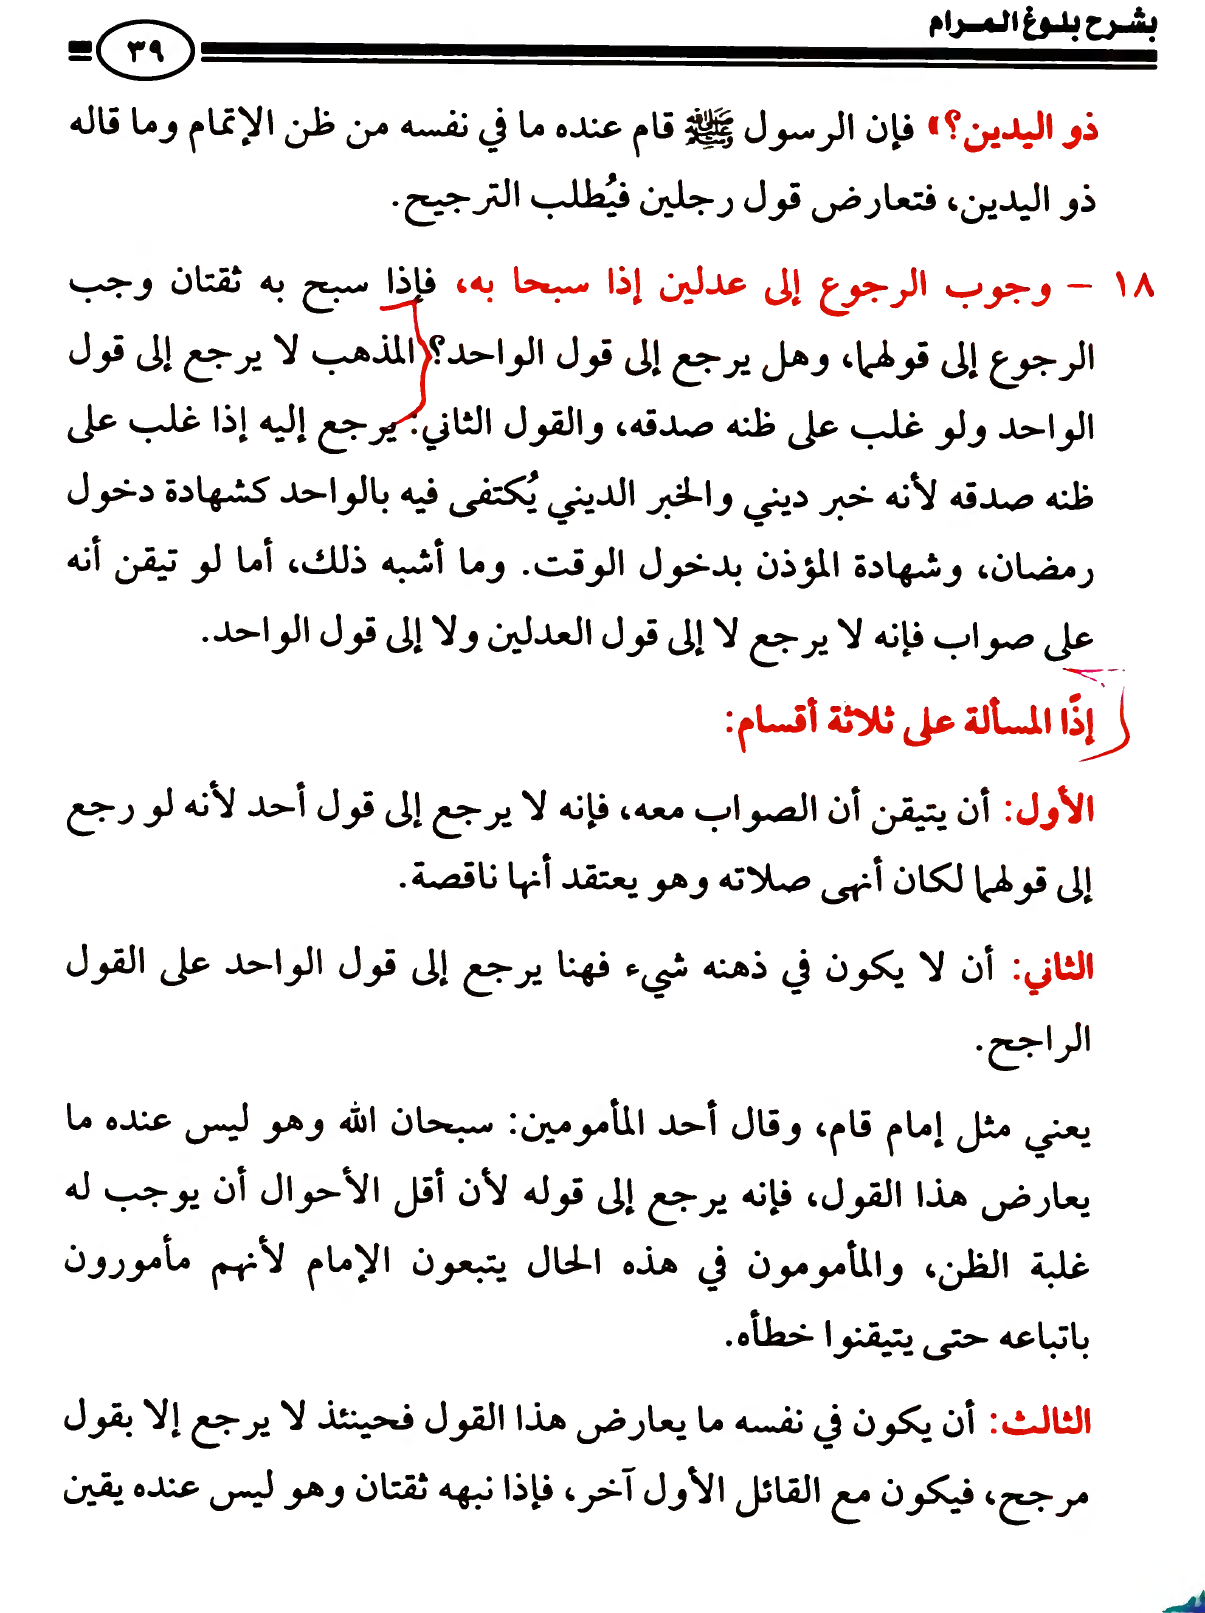 بشرح بلوغ المرام
٣٩
ذو اليدين؟» فإن الرسول ﷺ قام عنده ما في نفسه من ظن الإتمام وما قاله
ذو اليدين، فتعارض قول رجلين فيُطلب الترجيح.
١٨ - وجوب الرجوع إلى عدلين إذا سبحا به، فإذا سبح به ثقتان وجب
الرجوع إلى قولهما، وهل يرجع إلى قول الواحد؟ المذهب لا يرجع إلى قول
الواحد ولو غلب على ظنه صدقه، والقول الثاني: يرجع إليه إذا غلب على
ظنه صدقه لأنه خبر ديني والخبر الديني يُكتفى فيه بالواحد كشهادة دخول
رمضان، وشهادة المؤذن بدخول الوقت. وما أشبه ذلك، أما لو تيقن أنه
على صواب فإنه لا يرجع لا إلى قول العدلين ولا إلى قول الواحد.
إذًا المسألة على ثلاثة أقسام:
الأول: أن يتيقن أن الصواب معه، فإنه لا يرجع إلى قول أحد لأنه لو رجع
إلى قولهما لكان أنهى صلاته وهو يعتقد أنها ناقصة.
الثاني: أن لا يكون في ذهنه شيء فهنا يرجع إلى قول الواحد على القول
الراجح.
يعني مثل إمام قام، وقال أحد المأمومين: سبحان الله وهو ليس عنده ما
يعارض هذا القول، فإنه يرجع إلى قوله لأن أقل الأحوال أن يوجب له
غلبة الظن، والمأمومون في هذه الحال يتبعون الإمام لأنهم مأمورون
باتباعه حتى يتيقنوا خطأه.
الثالث: أن يكون في نفسه ما يعارض هذا القول فحينئذ لا يرجع إلا بقول
مرجح، فيكون مع القائل الأول آخر، فإذا نبهه ثقتان وهو ليس عنده يقين